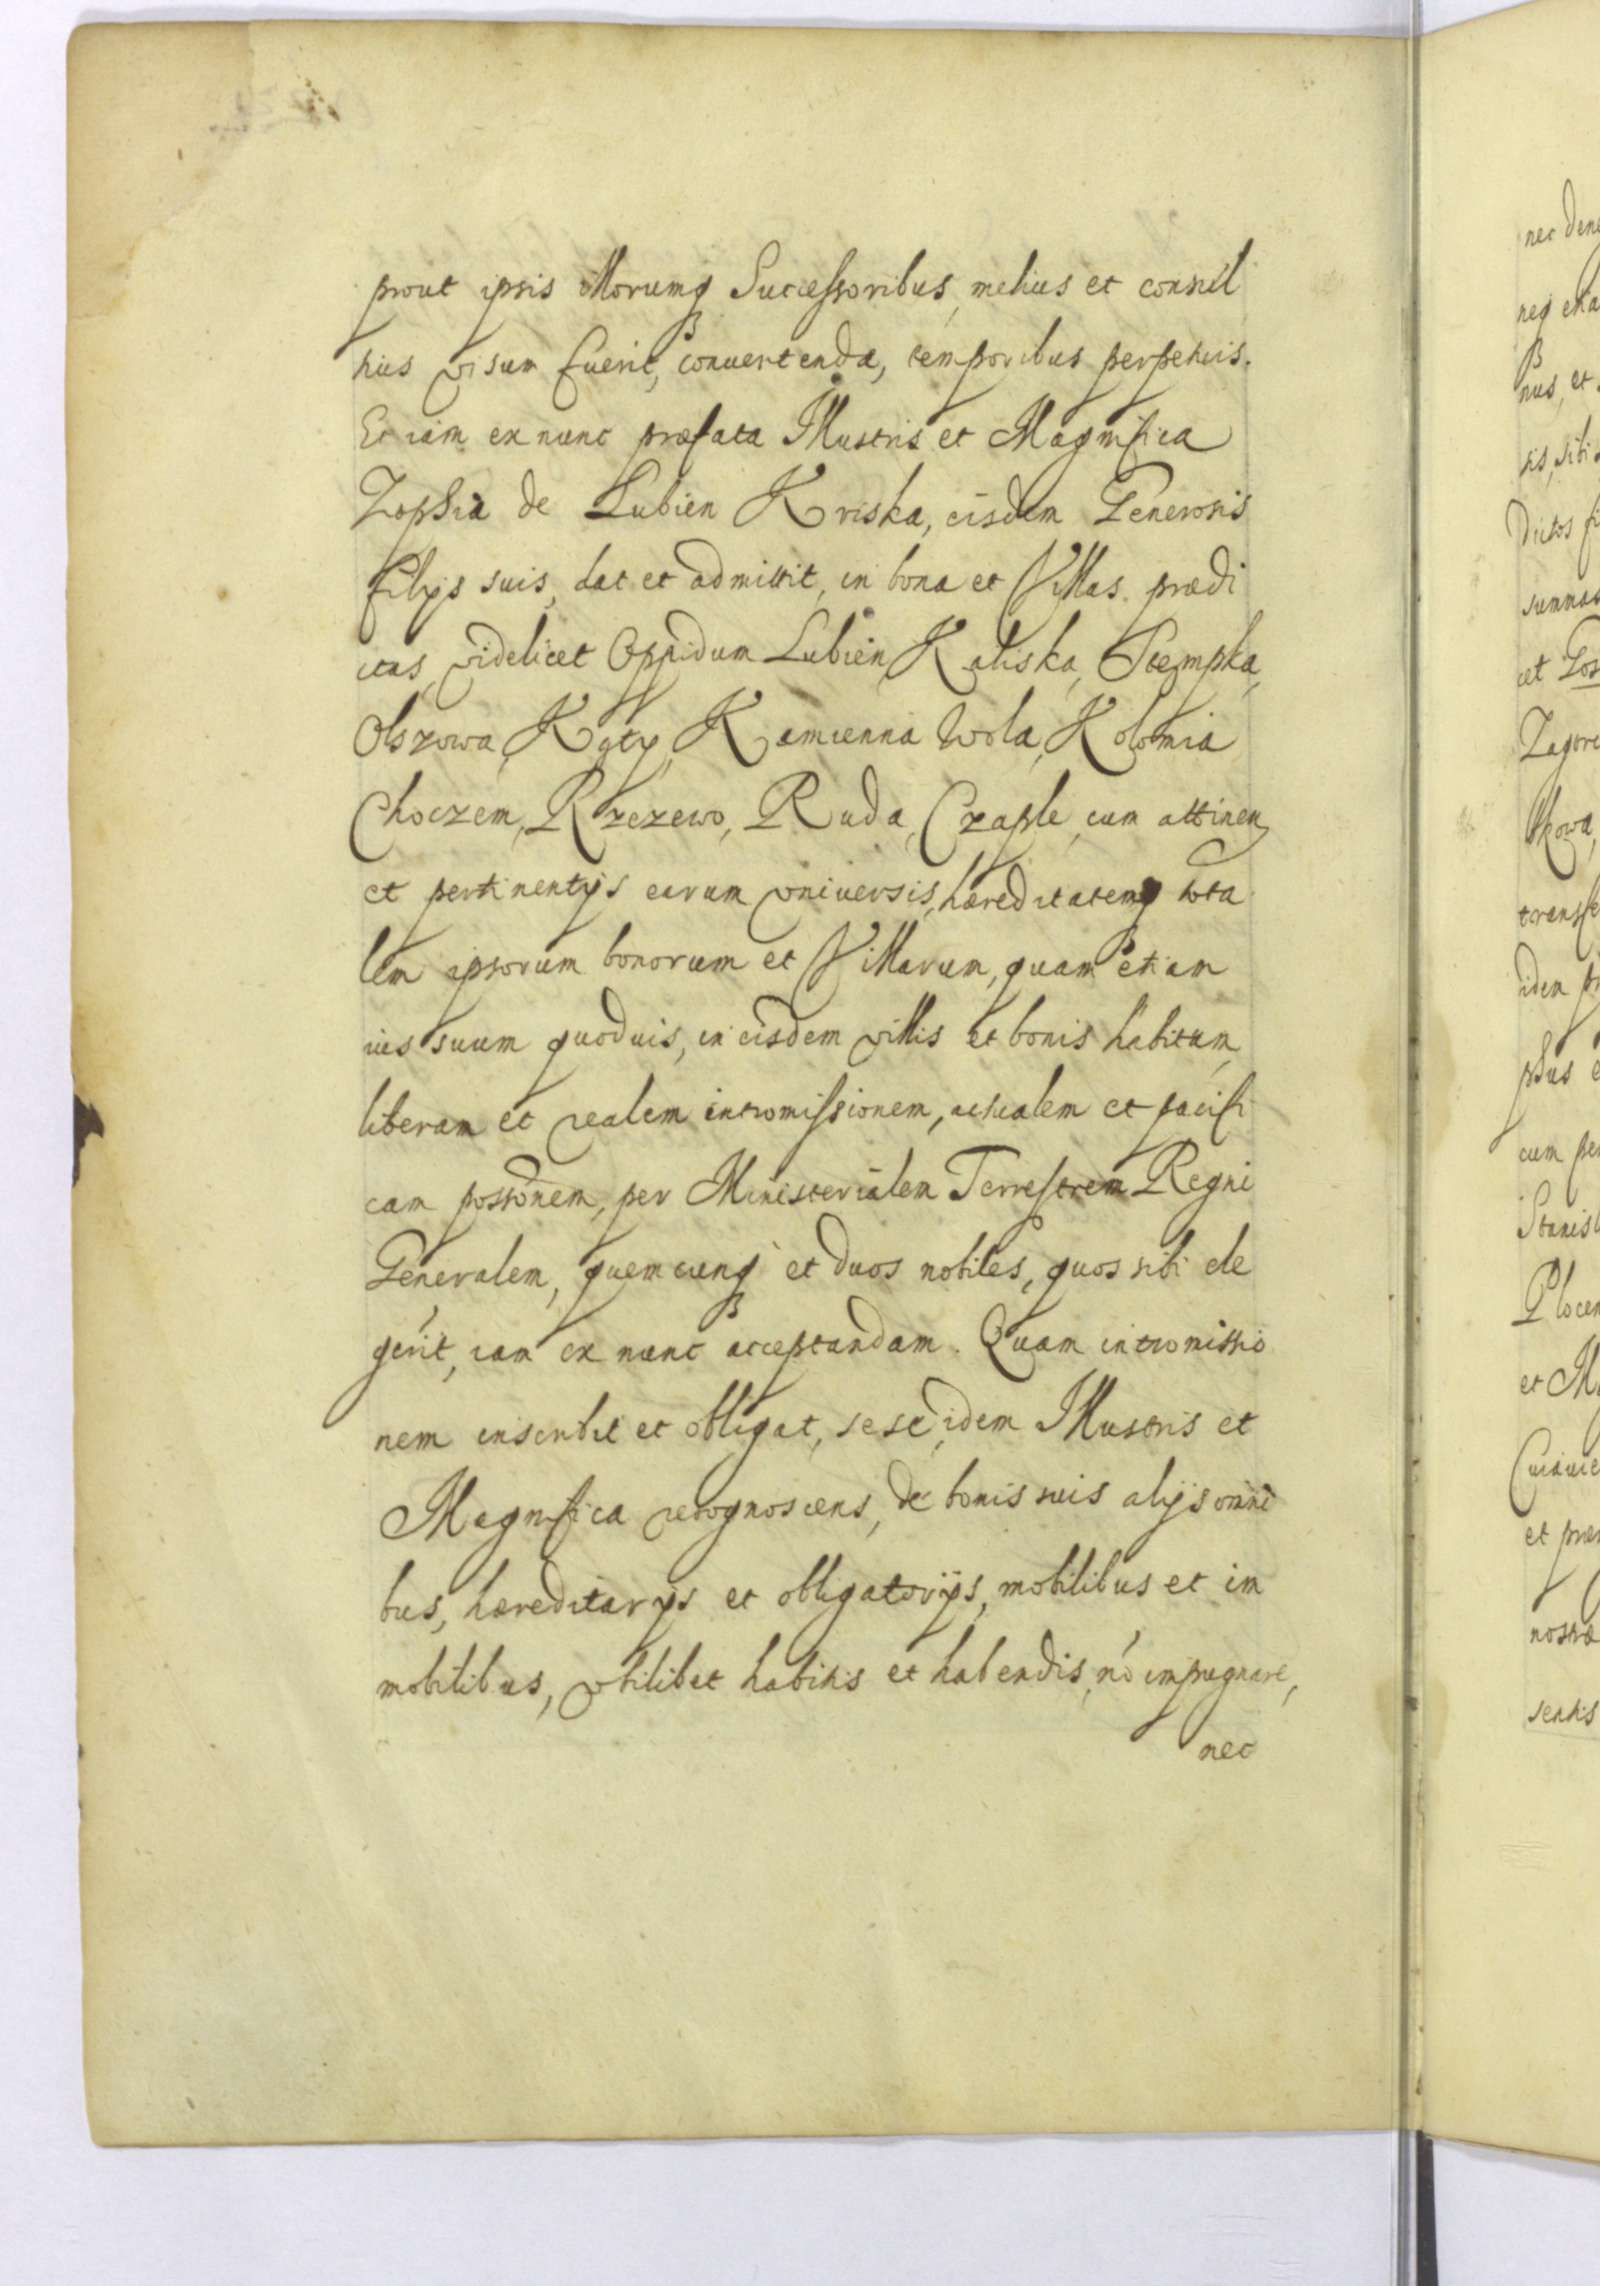 prout ipsis illorumq Successoribus, melius et consul
tius visum fuerit, conuertenda, temporibus perpetuis.
Et iam ex nunc præfata Illustris et Magnifica
Zophia de Lubien Kriska, eisdem Generosis
filijs suis, dat et admittit, in bona et Villas prædi
ctas, videlicet Oppidum Lubien, Kaliska, Stempka,
Olszowa, Kąty, Kamienna Wola, Kolomia
Choczem, Rzezewo, Ruda, Czaple, cum attinen
et pertinentijs earum vniuersis, hæreditatemq tota
lem ipsorum bonorum et Villarum, quam etiam
ius suum quoduis, in eisdem villis et bonis habitum,
liberam et realem intromissionem, actualem et pacifi
cam possonem, per Ministerialem Terrestrem Regni
Generalem, quemcunq et duos nobiles, quos sibi ele
gerit, iam ex nunc acceptandam. Quam intromissio
nem inscribit et obligat, sese, idem Illustris et
Magnifica recognoscens, de bonis suis alijs omni
bus, hæreditarijs et obligatorijs, mobilibus et im
mobilibus, vbilibet habitis et habendis, nō impugnare,
nec
nec
neq
nus, et
sis, sibi
dictos
summas
et
Stanisl
et
et
sentis